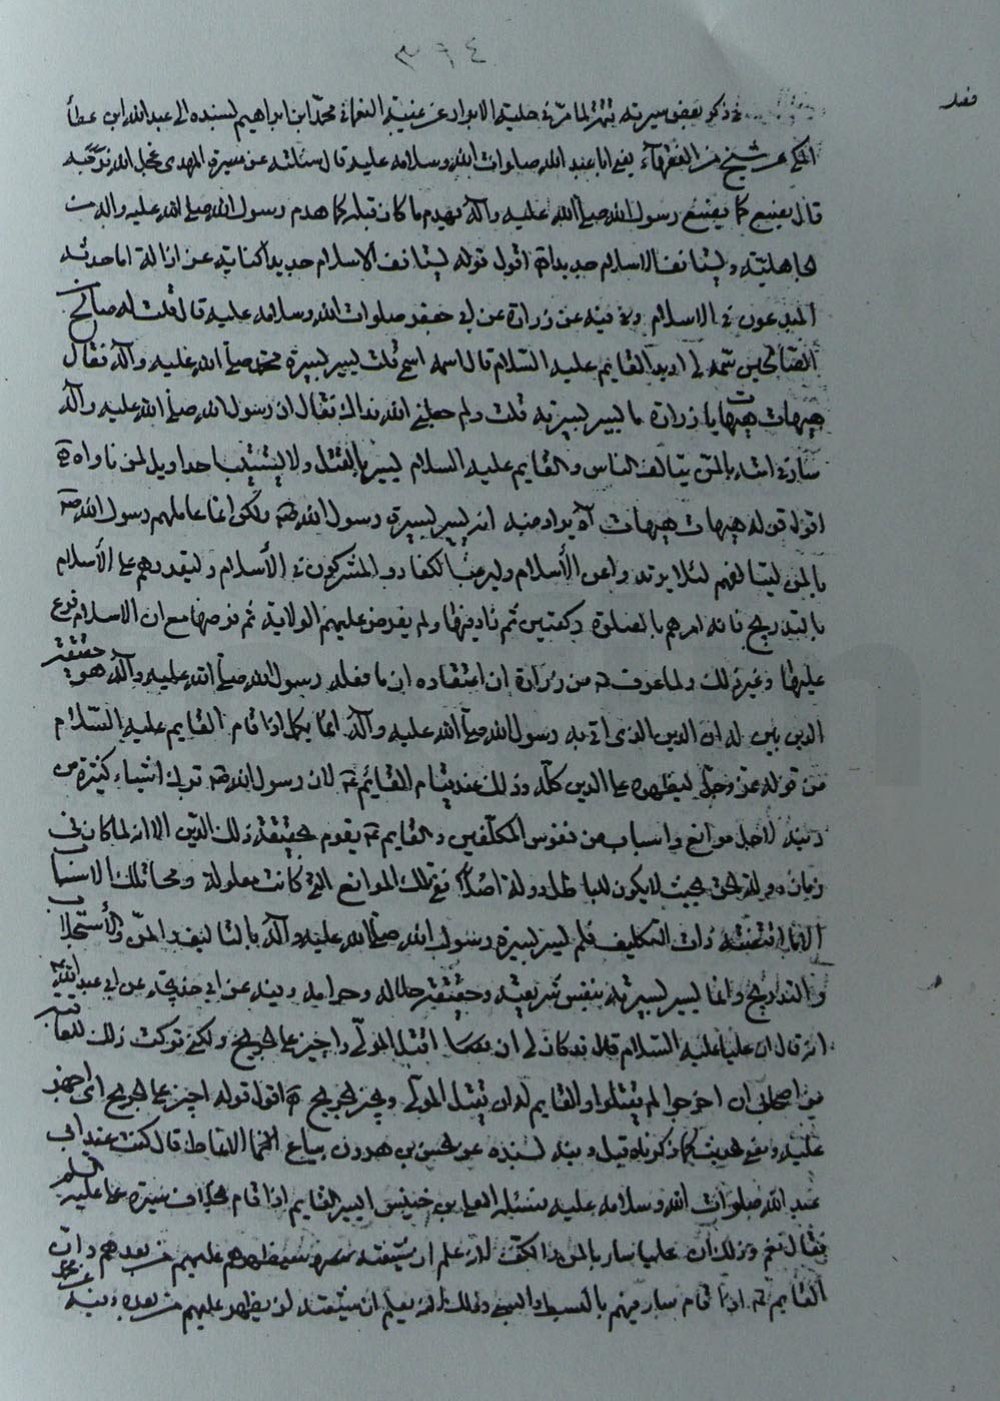 ٣٢٤
فصل
في ذكر بعض سيرته تتمة لما مر في حلية الابرار عن غيبة النعماني محمد ابن ابراهيم بسنده الى عبدالله ابن عطا
المكي عن شيخ من الفقهآء يعني ابا عبد الله صلوات الله وسلامه عليه قال سئلته عن سيرة المهدي عجل الله فرجه
قال يصنع كما يصنع رسول الله صلى الله عليه وآله يهدم ما كان قبله كما هدم رسول الله صلى الله عليه واله
الجاهلية ويستانف الاسلام جديدا اقول قوله يستانف الاسلام جديدا كناية عن ازالة ما احدثه
المبدعون في الاسلام وفيه عن زرارة عن ابي جعفر صلوات الله وسلامه عليه قال قلت له صالح
الصالحين سمه لي اريد القايم عليه السلام قال اسمه اسمي قلت يسير بسيرة محمد صلى الله عليه وآله فقال
هيهات هيهات يا زرارة ما يسير بسيرته قلت ولم جعلني الله فداك فقال ان رسول الله صلى الله عليه وآله
سار في امته بالمن يتالف الناس والقايم عليه السلام يسير بالقتل ولا يستتيب احدا ويل لمن ناواه
اقول قوله هيهات هيهات اه يراد منه انه يسير بسيرة رسول الله ولكن انما عاملهم رسول الله
بالمن ليتالفهم لئلا يرتدوا عن الأسلام وليرغب الكفار والمشركون في الأسلام وليقررهم على الأسلام
بالتدريج فانه امرهم بالصلوة ركعتين ثم زاد فيها ولم يفرض عليهم الولاية ثم فرضها مع ان الاسلام فرع
عليها وغير ذلك ولما عرف من زرارة ان اعتقاده ان ما فعله رسول الله صلى الله عليه وآله هو حقيقة
الدين بين له ان الدين الذي اتى به رسول الله صلى الله عليه وآله انما يكمل اذا قام القايم عليه السلام
من قوله عز وجل ليظهره على الدين كله وذلك عند قيام القائم لان رسول الله ترك اشياء كثيرة من
دينه لاجل موانع واسباب من نفوس المكلفين والقايم يقوم بحقيقة ذلك الدين الا انه لما كان في
زمانه دولة الحق بحيث لا يكون للباطل دولة اصلا رفع تلك الموانع التي كانت معلولة ومحا تلك الاسباب
التي اقتضته ذات التكليف فلم يسير بسيرة رسول الله صلى الله عليه وآله بالتاليف والمن والأستجلاب
والتدريج وانما يسير بسيرته بنفس شريعته وحقيقة حلاله وحرامه وفيه عن ابي خديجة عن ابي عبد الله
انه قال ان عليا عليه السلام قال قد كان لي ان اقتل المولى واجيز على الجريح ولكني تركت ذلك للعاقبة
من اصحابي ان اخرجوا لم يقتلوا والقايم له ان يقتل المولى ويجهز الجريح اقول قوله اجيز على الجريح اي اجهز
عليه ومعنى الحديث كما ذكرناه قبل وفيه بسنده عن الحسن بن هرون بياع الانماط قال كنت عند ابي
عبد الله صلوات الله وسلامه عليه فسئله المعلى بن خنيس ايسير القايم اذا قام بخلاف سيرة علي عليه السلم
فقال نعم وذلك ان عليا سار بالمن والكف لانه علم ان شيعته سيظهر عليهم من بعدهم وان
القايم اذا قام سار فيهم بالسيف والسبي وذلك انه يعلم ان شيعته لن يظهر عليهم من بعده وفيه